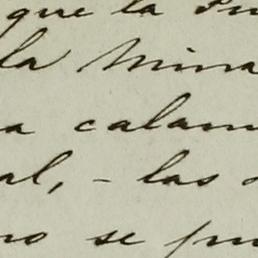 que la
la Mina
a calam
al, - las
no se pu